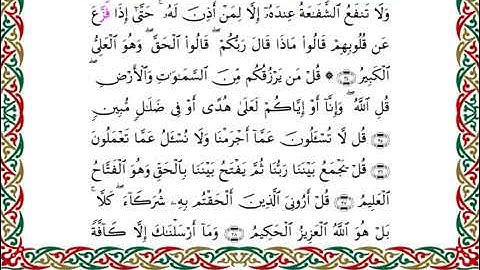 وَلَا تَنفَعُ الشَّفَٰعَةُ عِندَهُۥٓ إِلَّا لِمَنْ أَذِنَ لَهُۥ ۚ حَتَّىٰٓ إِذَا فُزِّعَ
عَن قُلُوبِهِمْ قَالُوا۟ مَاذَا قَالَ رَبُّكُمْ ۖ قَالُوا۟ الْحَقَّ ۖ وَهُوَ الْعَلِىُّ
الْكَبِيرُ ﴿٢٣﴾ ۞ قُلْ مَن يَرْزُقُكُم مِّنَ السَّمَٰوَٰتِ وَالْأَرْضِ ۖ
قُلِ اللَّهُ ۖ وَإِنَّآ أَوْ إِيَّاكُمْ لَعَلَىٰ هُدًى أَوْ فِى ضَلَٰلٍ مُّبِينٍ
﴿٢٤﴾ قُل لَّا تُسْـَٔلُونَ عَمَّآ أَجْرَمْنَا وَلَا نُسْـَٔلُ عَمَّا تَعْمَلُونَ
﴿٢٥﴾ قُلْ يَجْمَعُ بَيْنَنَا رَبُّنَا ثُمَّ يَفْتَحُ بَيْنَنَا بِالْحَقِّ وَهُوَ الْفَتَّاحُ
الْعَلِيمُ ﴿٢٦﴾ قُلْ أَرُونِىَ الَّذِينَ أَلْحَقْتُم بِهِۦ شُرَكَآءَ ۖ كَلَّا ۚ
بَلْ هُوَ اللَّهُ الْعَزِيزُ الْحَكِيمُ ﴿٢٧﴾ وَمَآ أَرْسَلْنَٰكَ إِلَّا كَآفَّةً